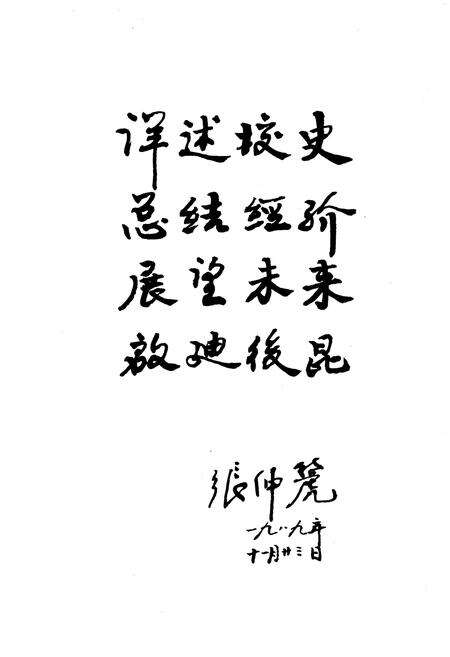 详述校史
总结經验
展望未来
啟迪後昆
張仲篪
一九八九年
十一月廿三日